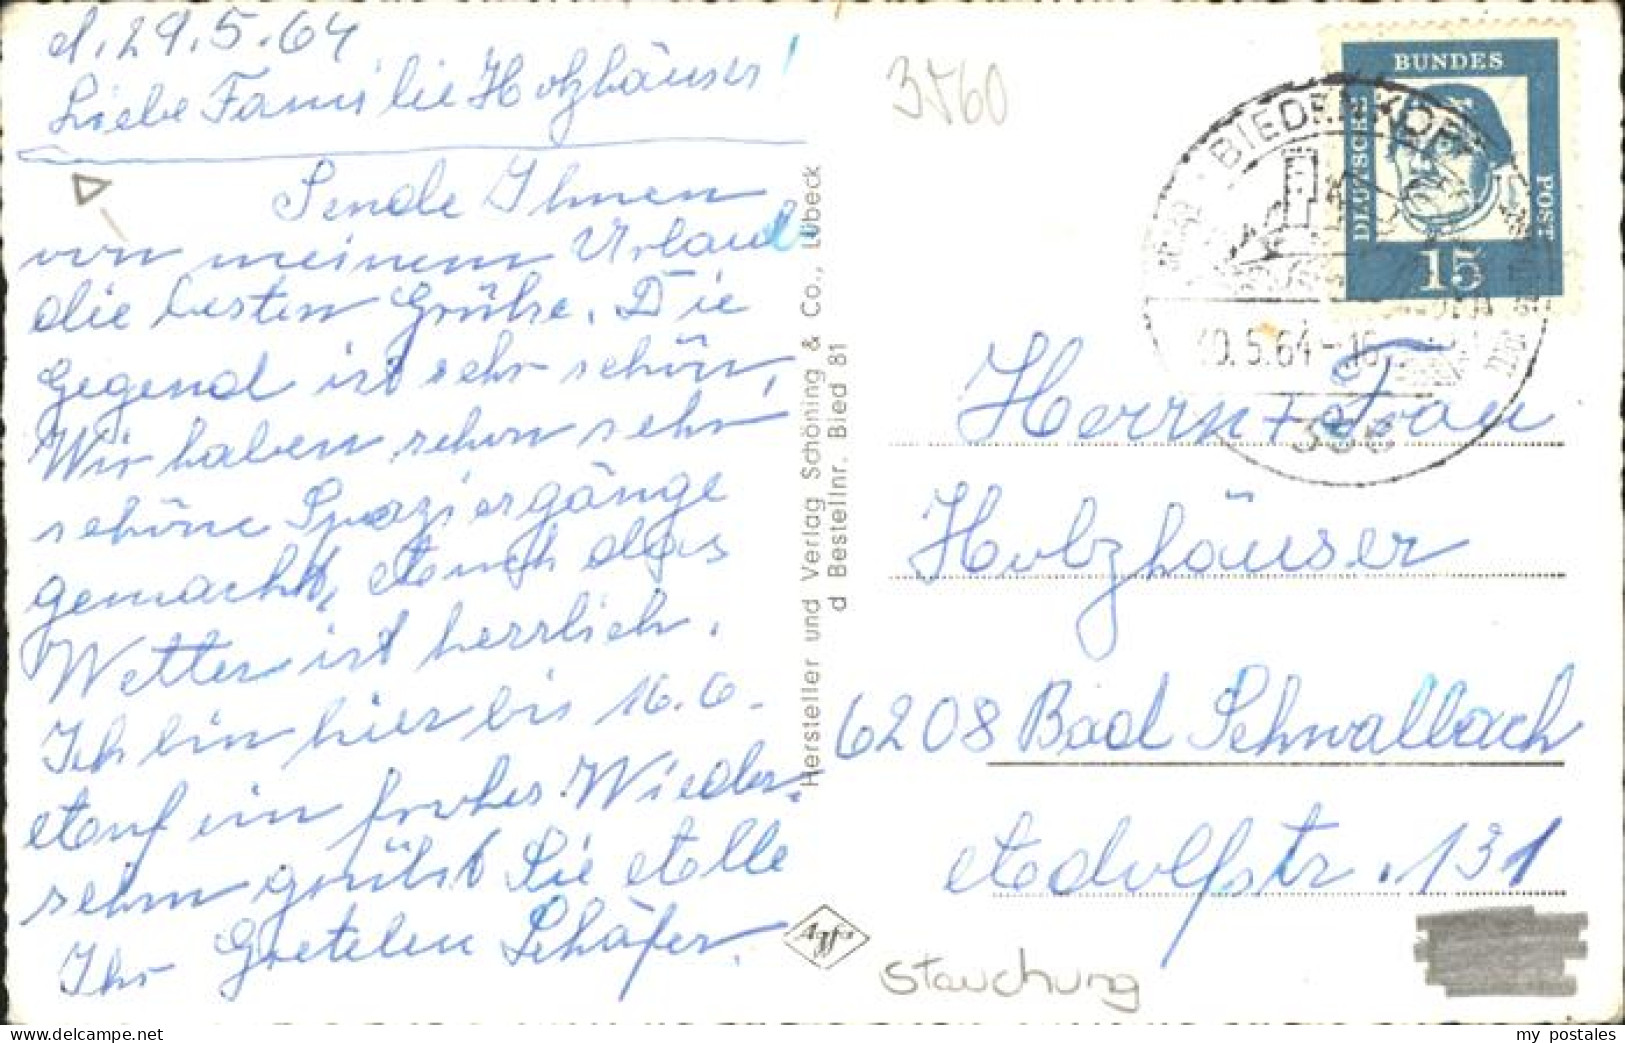 d. 29.5.64
Liebe Familie Holzhäuser!
Sende Ihnen
von meinem Urlaub
die besten Grüße. Die
Gegend ist sehr schön,
Wir haben schon sehr
schöne Spaziergänge
gemacht, Auch das
Wetter ist herrlich.
Ich bin hier bis 16.6.
Auf ein frohes Wieder-
sehn grüßt Sie Alle
Ihr Gretelen Schäfer.
Hersteller und Verlag Schöning & Co., Lübeck
d Bestellnr. Bied 81
Agfa
3560
BIEDENKOPF
30.5.64-16
356
BUNDES
DEUTSCHE
POST
15
Herrn + Frau
Holzhäuser
6208 Bad Schwalbach
Adolfstr. 131
Stauchung
my postales